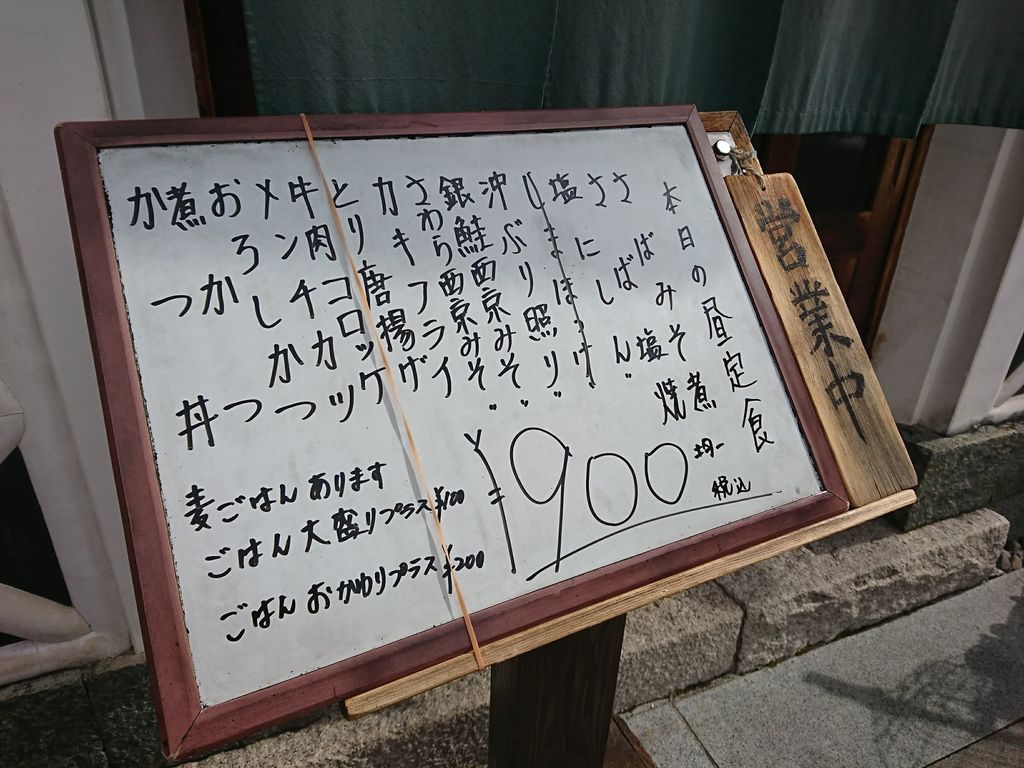 本日の昼定食
さばみそ煮
さば塩焼
塩にしん〃
しまほっけ〃
沖ぶり照り〃
銀鮭西京みそ〃
さわら西京みそ〃
カキフライ
とり唐揚げ
牛肉コロッケ
メンチカツ
おろしかつ
煮かつ
かつ丼
¥900均一
税込
麦ごはんあります
ごはん大盛りプラス¥100
ごはんおかわりプラス¥200
営業中